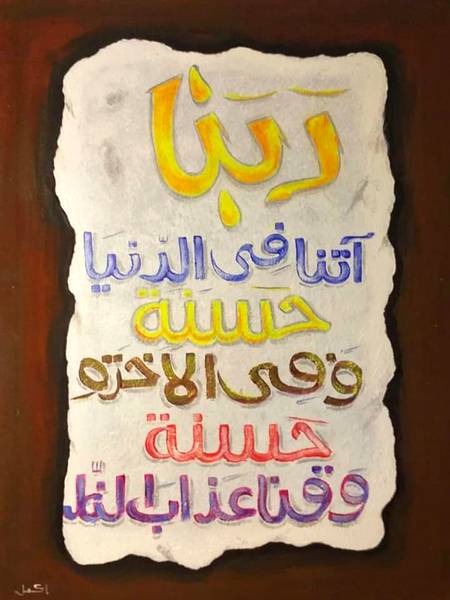 رَبَنَا
آتنا فى الدّنيَا
حَسَنَة
وَفى الاخرَة
حَسنة
وَقنا عذاب النّار
اكمل